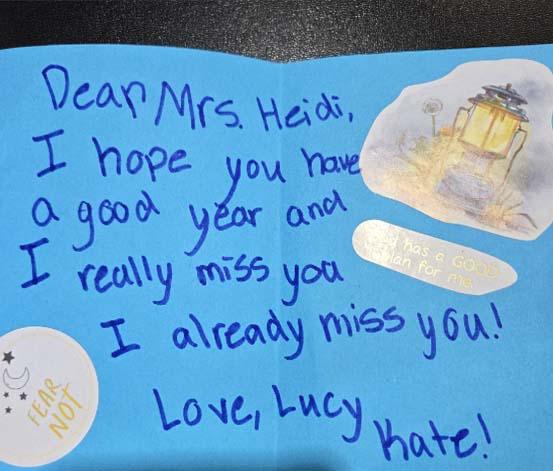 Dear Mrs. Heidi,
I hope you have
a good year and
I really miss you
I already miss you!
Love, Lucy
Kate!
has a GOOD
plan for me
FEAR
NOT